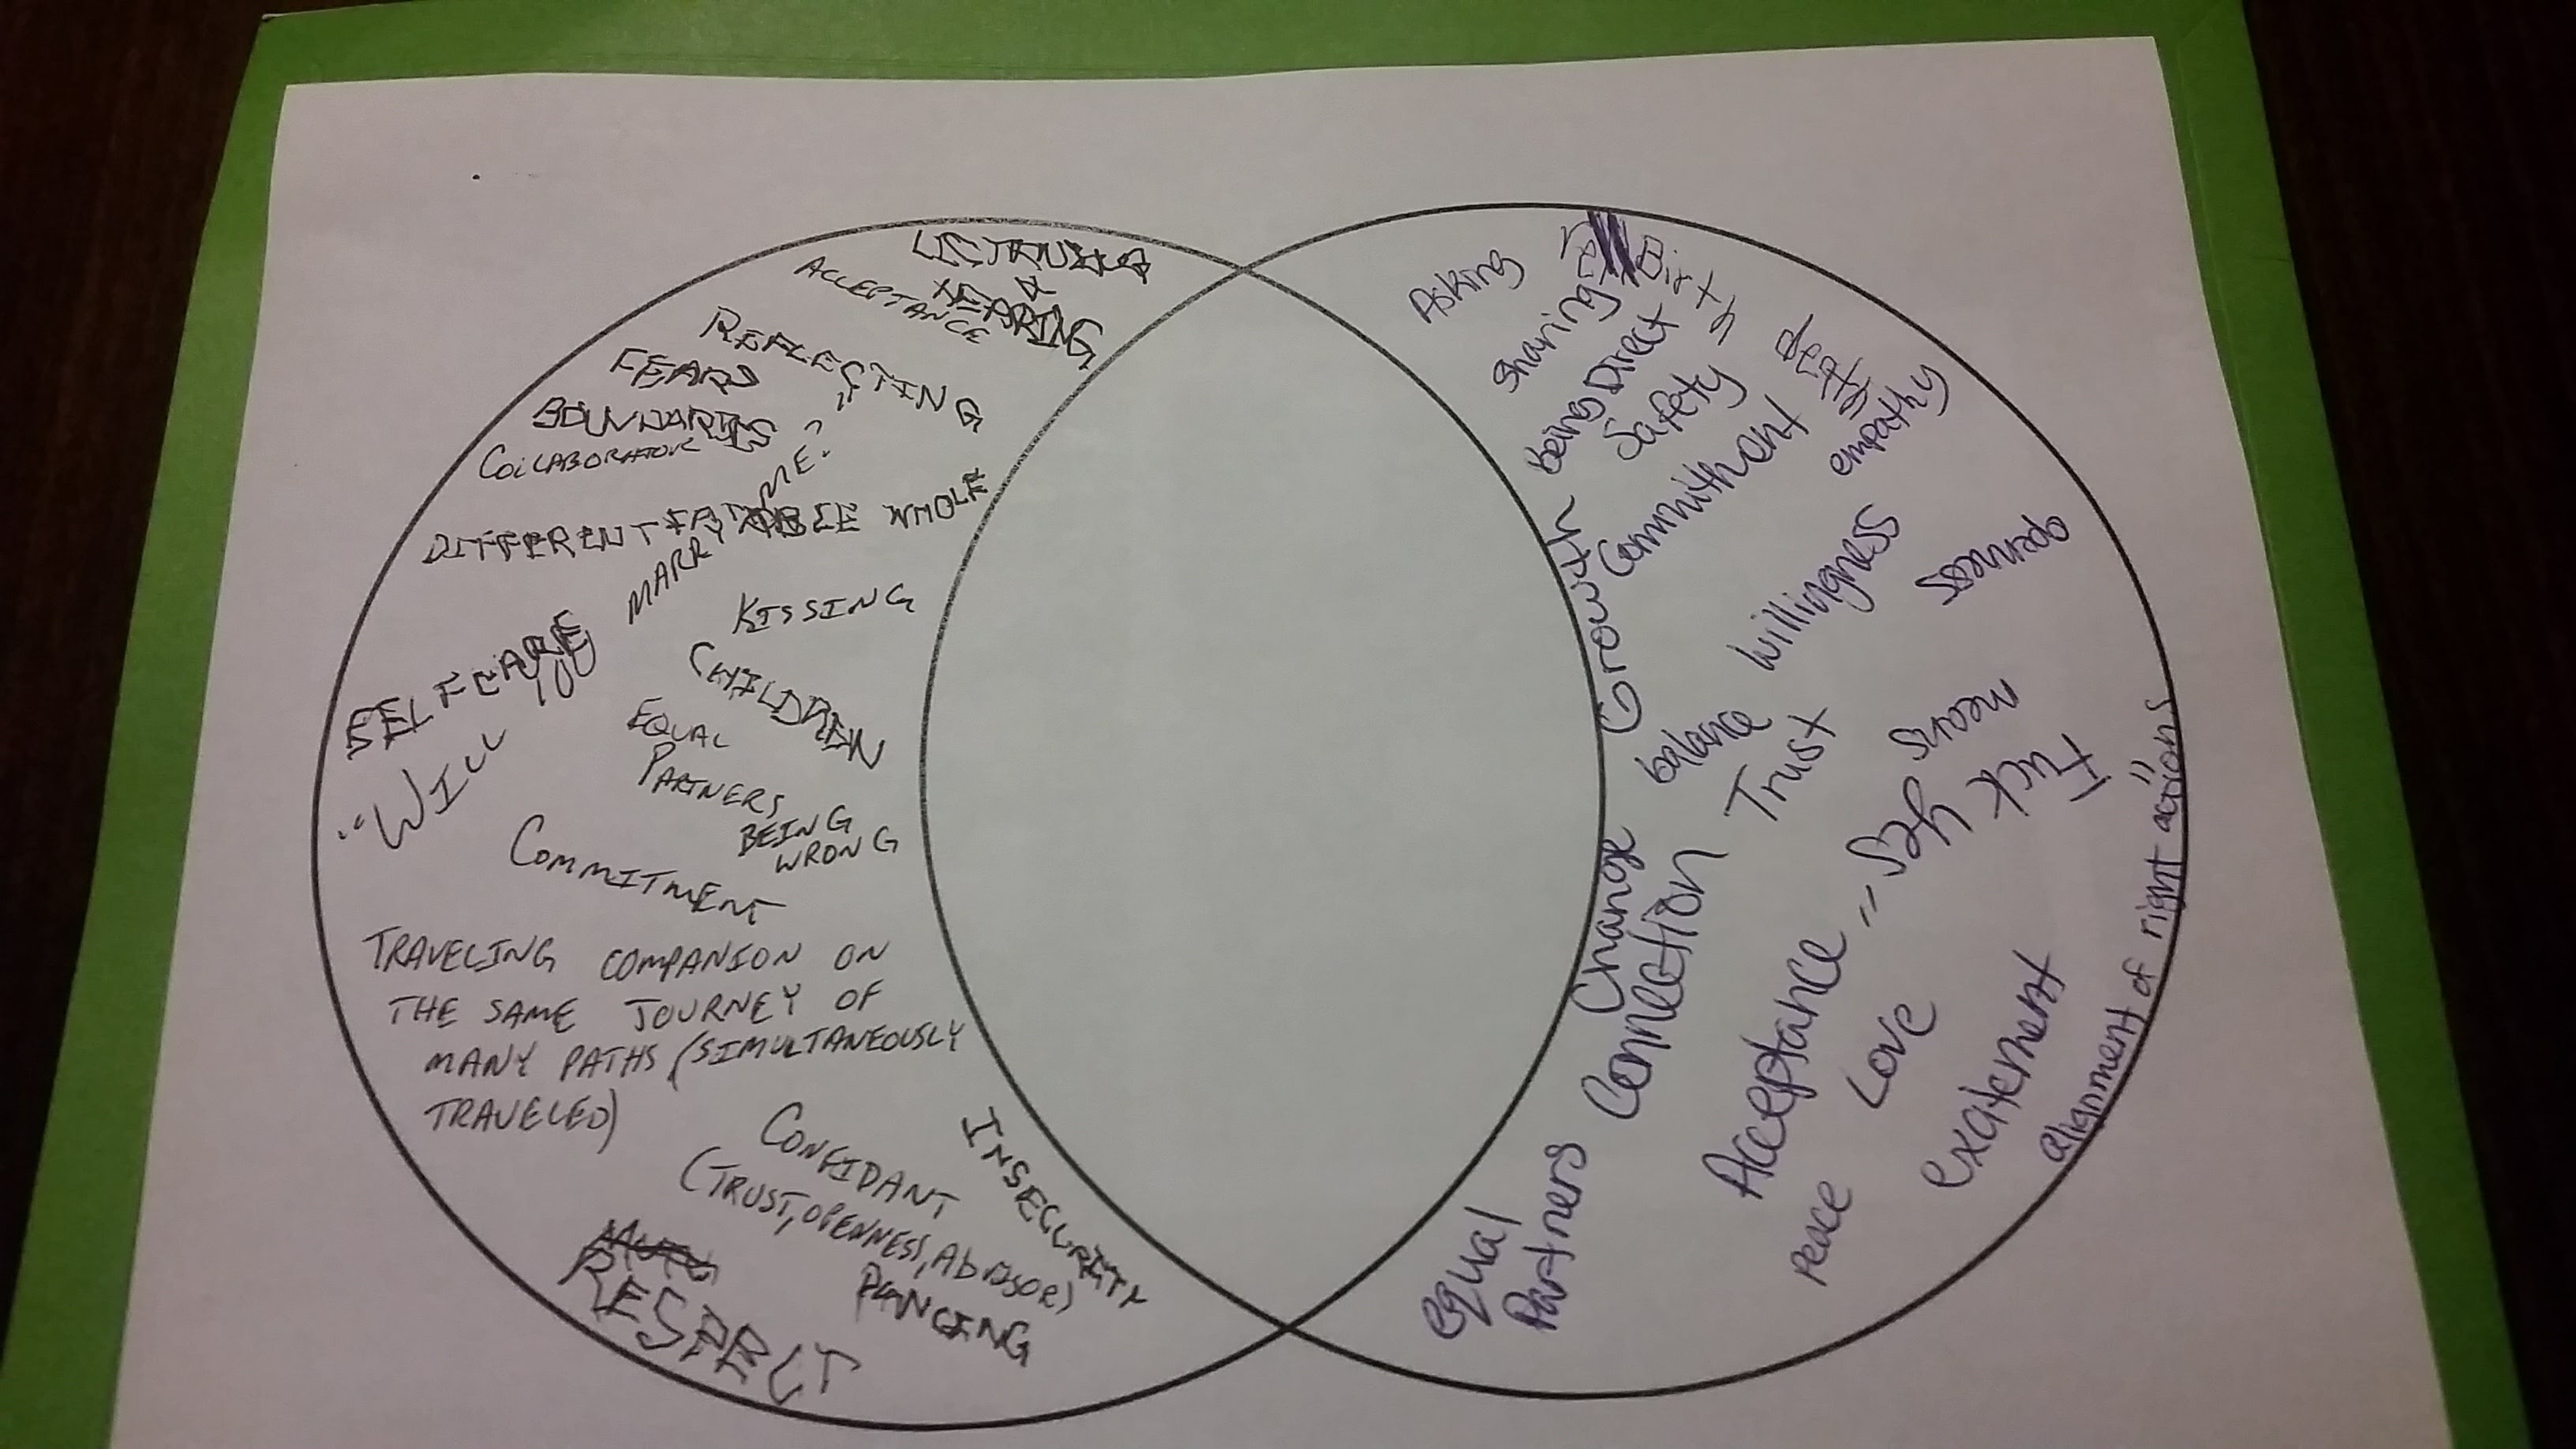 LISTENING
&
HEARING
ACCEPTANCE
REFLECTING
FEARS
BOUNDARIES
COLLABORATOR
DIFFERENT WHOLE
SELFCARE
"WILL YOU MARRY ME?"
KISSING
CHILDREN
EQUAL
PARTNERS
BEING
WRONG
COMMITMENT
TRAVELING COMPANION ON
THE SAME JOURNEY OF
MANY PATHS (SIMULTANEOUSLY
TRAVELED)
CONFIDANT
(TRUST, OPENNESS, AbVISOR)
INSECURITY
DANCING
RESPECT
Asking
Sharing
Being Direct
Safety
Commitment
empathy
Growth
willingness
openness
balance
Trust
means
"Yes
Fuck
"
Change
Connection
Acceptance
Love
excitement
alignment of right actions
equal
Partners
peace